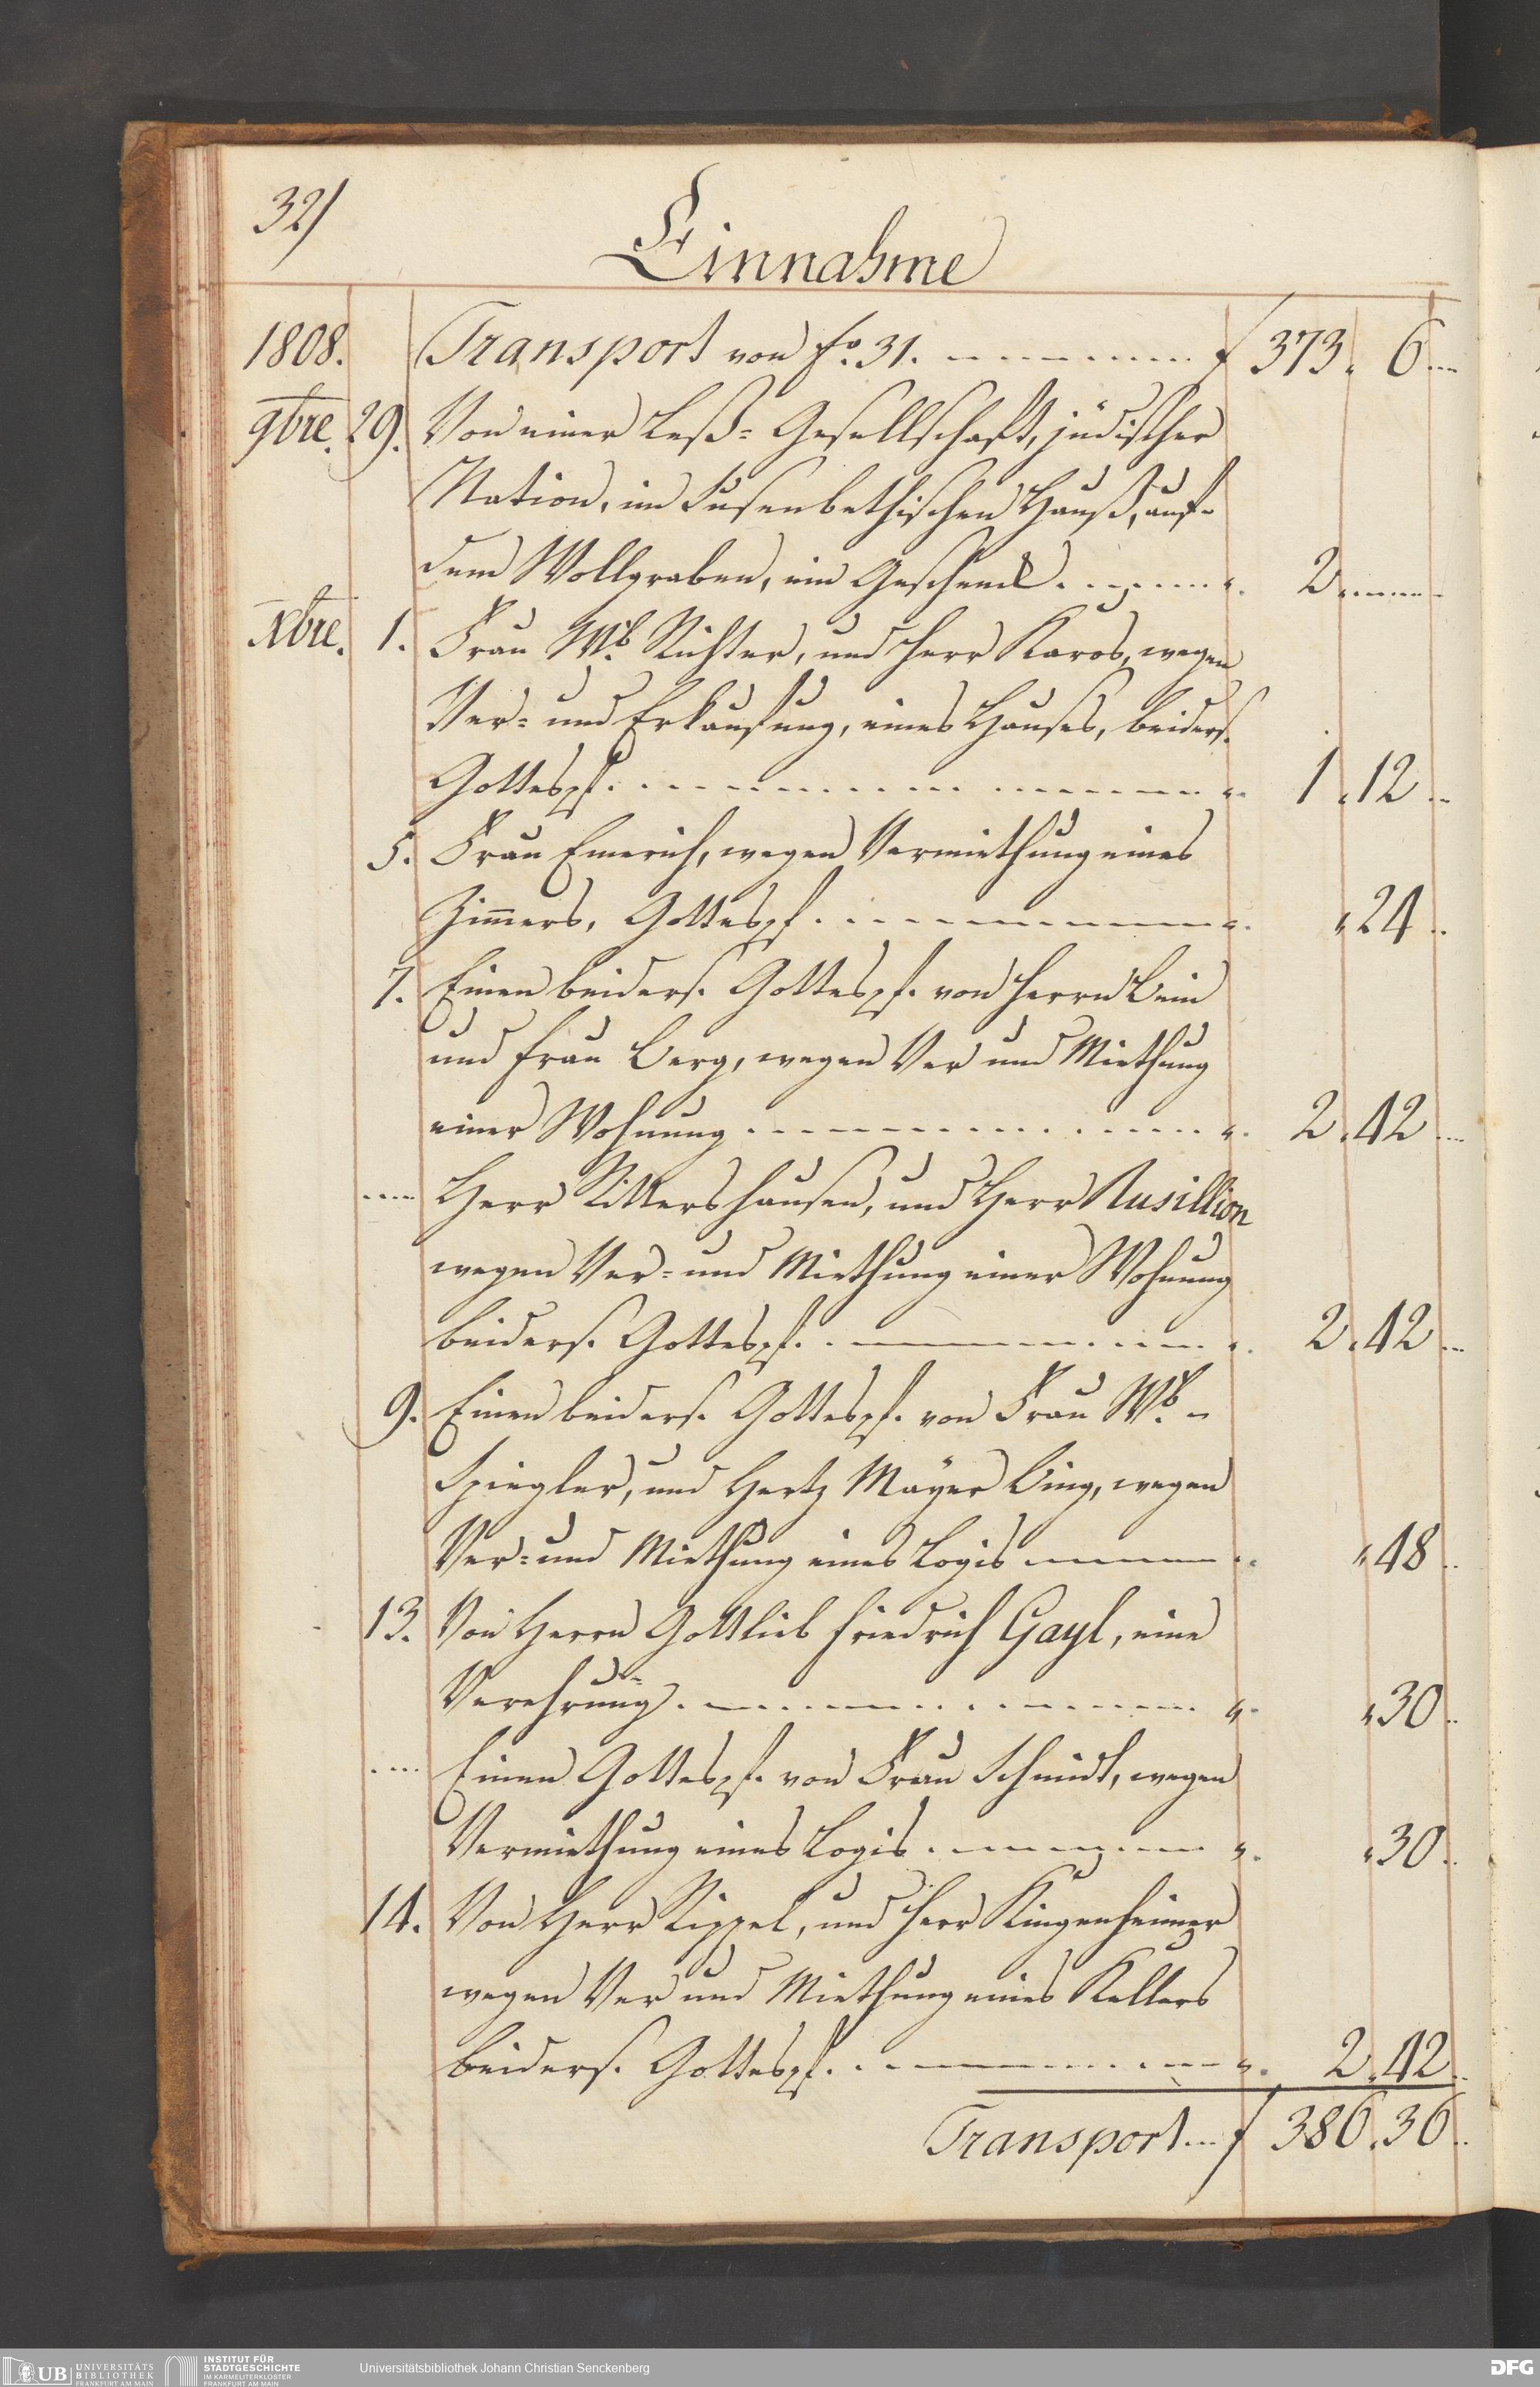 32/
Einnahme
1808. Transport von fo. 31. f 373. 6
9bre. 29. Von einer Leß= Gesellschaft, jüdischer
Nation, im Fusenbethischen Hauß, auf
dem Wollgraben, ein Geschenck. 2
Xbre. 1. Frau Wb. Richter, und Herr Karos, wegen
Ver= und Erkaufung, eines Hauses, beiders.
Gottespf. 1. 12
5. Frau Emerich, wegen Vermiethung eines
Zimmers, Gottespf. 24
7. Einen beiders. Gottespf. von Herrn Bein
und Frau Berg, wegen Ver und Miethung
einer Wohnung 2. 42
Herr Rittershausen, und Herr Rusillion
wegen Ver= und Miethung einer Wohnung
beiders. Gottespf. 2. 42
9. Einen beiders. Gottespf. von Frau Wb.
Spiegler, und Hertz Mayer Bing, wegen
Ver= und Miethung eines Logis 48
13. Von Herrn Gottlieb Friedrich Gayl, eine
Verehrung. 30
Einen Gottespf. von Frau Schmidt, wegen
Vermiethung eines Logis. 30
14. Von Herr Rippel, und Herr Kingenheimer
wegen Ver und Miethung eines Kellers
beiders. Gottespf. 2. 42
Transport f 386. 36
UB UNIVERSITÄTS
BIBLIOTHEK
FRANKFURT AM MAIN
INSTITUT FÜR
STADTGESCHICHTE
IM KARMELITERKLOSTER
FRANKFURT AM MAIN
Universitätsbibliothek Johann Christian Senckenberg
DFG